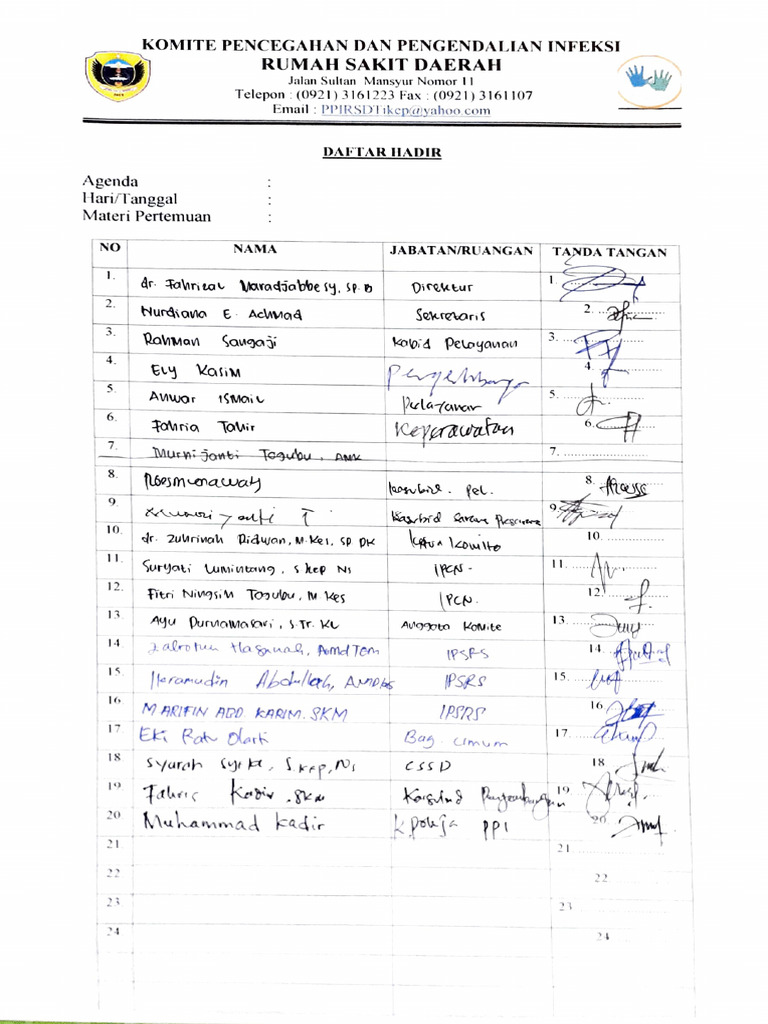 KOMITE PENCEGAHAN DAN PENGENDALIAN INFEKSI
RUMAH SAKIT DAERAH
Jalan Sultan Mansyur Nomor 11
Telepon : (0921) 3161223 Fax : (0921) 3161107
Email : PPIRSDTikep@yahoo.com
DAFTAR HADIR
Agenda :
Hari/Tanggal :
Materi Pertemuan :
NO NAMA JABATAN/RUANGAN TANDA TANGAN
1. dr. Fahrizal Maradjabbesy, Sp.B Direktur 1.
2. Nurdiana E. Achmad Sekretaris 2.
3. Rahman Sangaji Kabid Pelayanan 3.
4. Ely Kasim 4.
5. Anwar Ismail Pelayanan 5.
6. Fahria Tahir Keperawatan 6.
7. Murnijanti Togubu, AMK 7.
8. Roesmunawaty Kasubid. Pel. 8.
9. Kasubid 9.
10. dr. Zuhrinah Ridwan, M.Kes, Sp PK Ketua Komite 10.
11. Suryati Lumintang, S.Kep Ns IPCN. 11.
12. Fitri Ningsih Togubu, M.Kes IPCN. 12.
13. Ayu Purnamasari, S.Tr.KL Anggota Komite 13.
14 Hasanah, IPSRS 14.
15. Abdullah, IPSRS 15.
16 M ARIFIN ABD. KARIM. SKM IPSRS 16
17 Eki Ratu Bag. Umum 17.
18 Syarah S.Kep, Ns CSSD 18
19. Kadir, SKM 19.
20 Muhammad Kadir PPI 20.
21 21
22 22
23 23
24 24